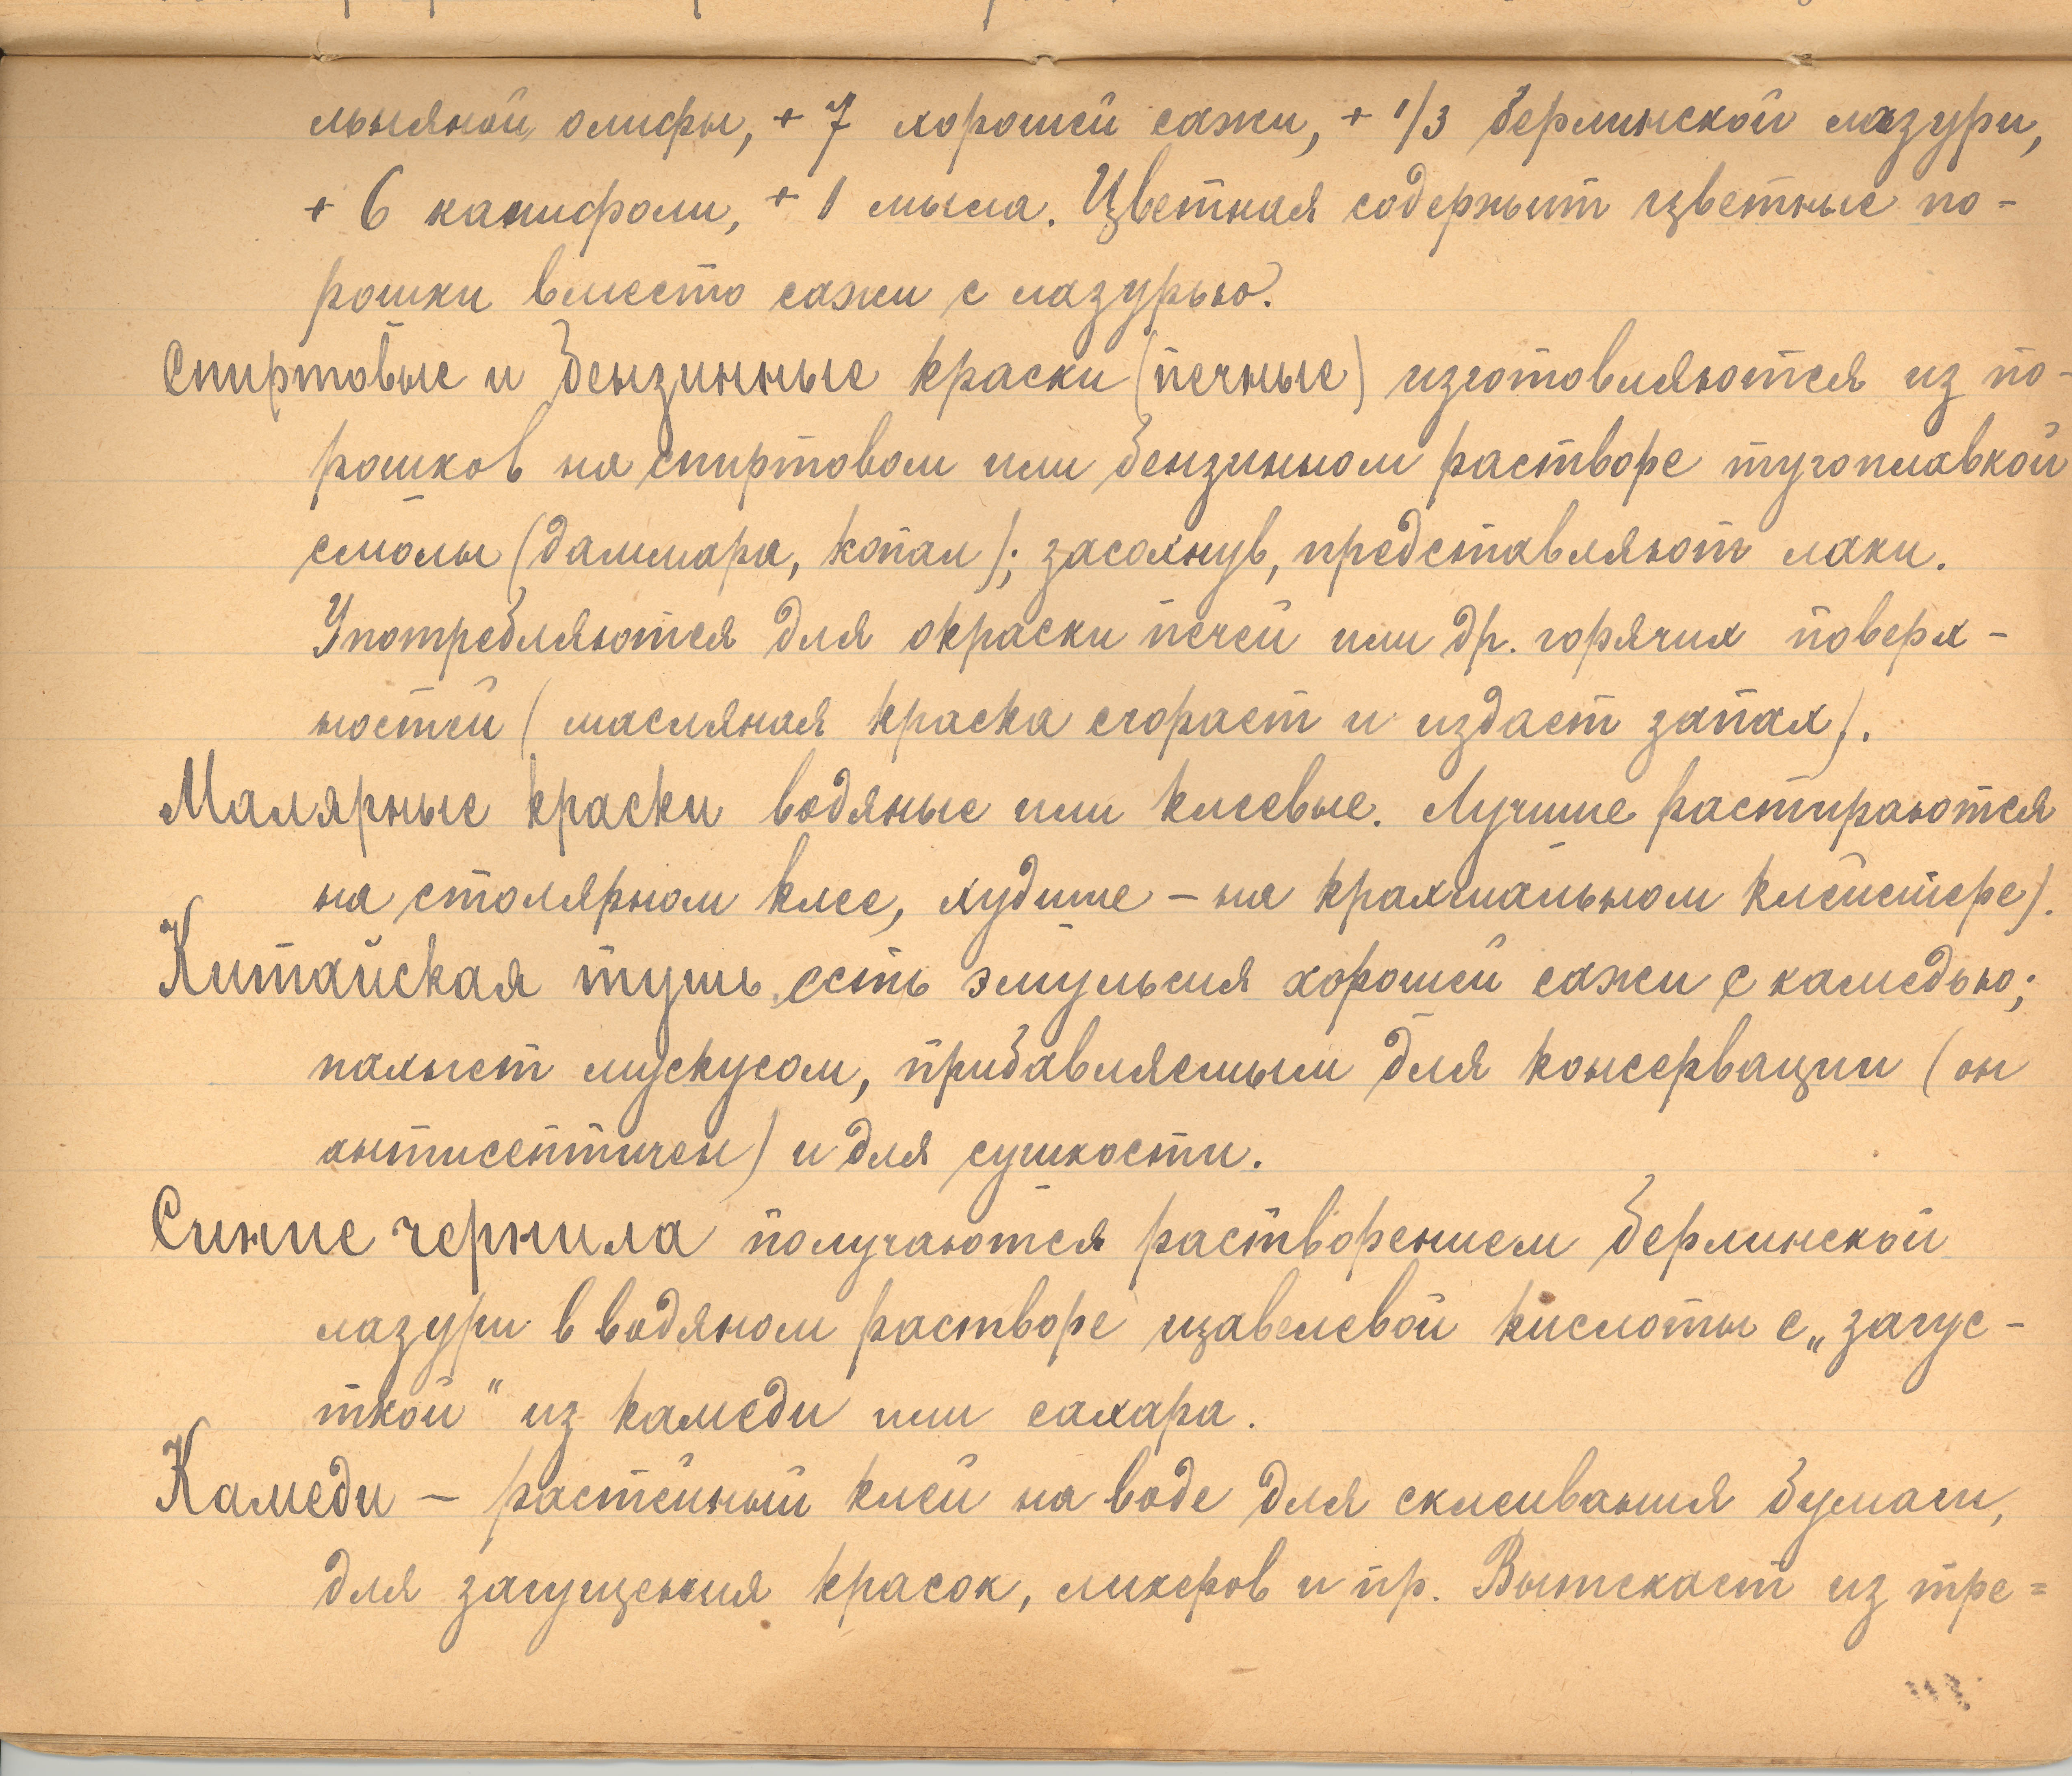 льняной олифы, + 7 хорошей сажи, + 1/3 берлинской лазури,
+ 6 канифоли, + 1 мыла. Цветная содержит цветные по-
рошки вместо сажи с лазурью.
Спиртовые и бензинные краски (печные) изготовляются из по-
рошков на спиртовом или бензинном растворе тугоплавкой
смолы (даммара, копал); засохнув, представляют лаки.
Употребляются для окраски печей или др. горячих поверх-
ностей (масляная краска сгорает и издает запах).
Малярные краски водяные или клеевые. Лучшие растираются
на столярном клее, худшие – на крахмальном клейстере).
Китайская тушь есть эмульсия хорошей сажи с камедью;
пахнет мускусом, прибавляемым для консервации (он
антисептичен) и для сушкости.
Синие чернила получаются растворением берлинской
лазури в водяном растворе щавелевой кислоты с „загус-
ткой" из камеди или сахара.
Камеди – растейный клей на воде для склеивания бумаги,
для загущения красок, ликеров и пр. Вытекает из тре=